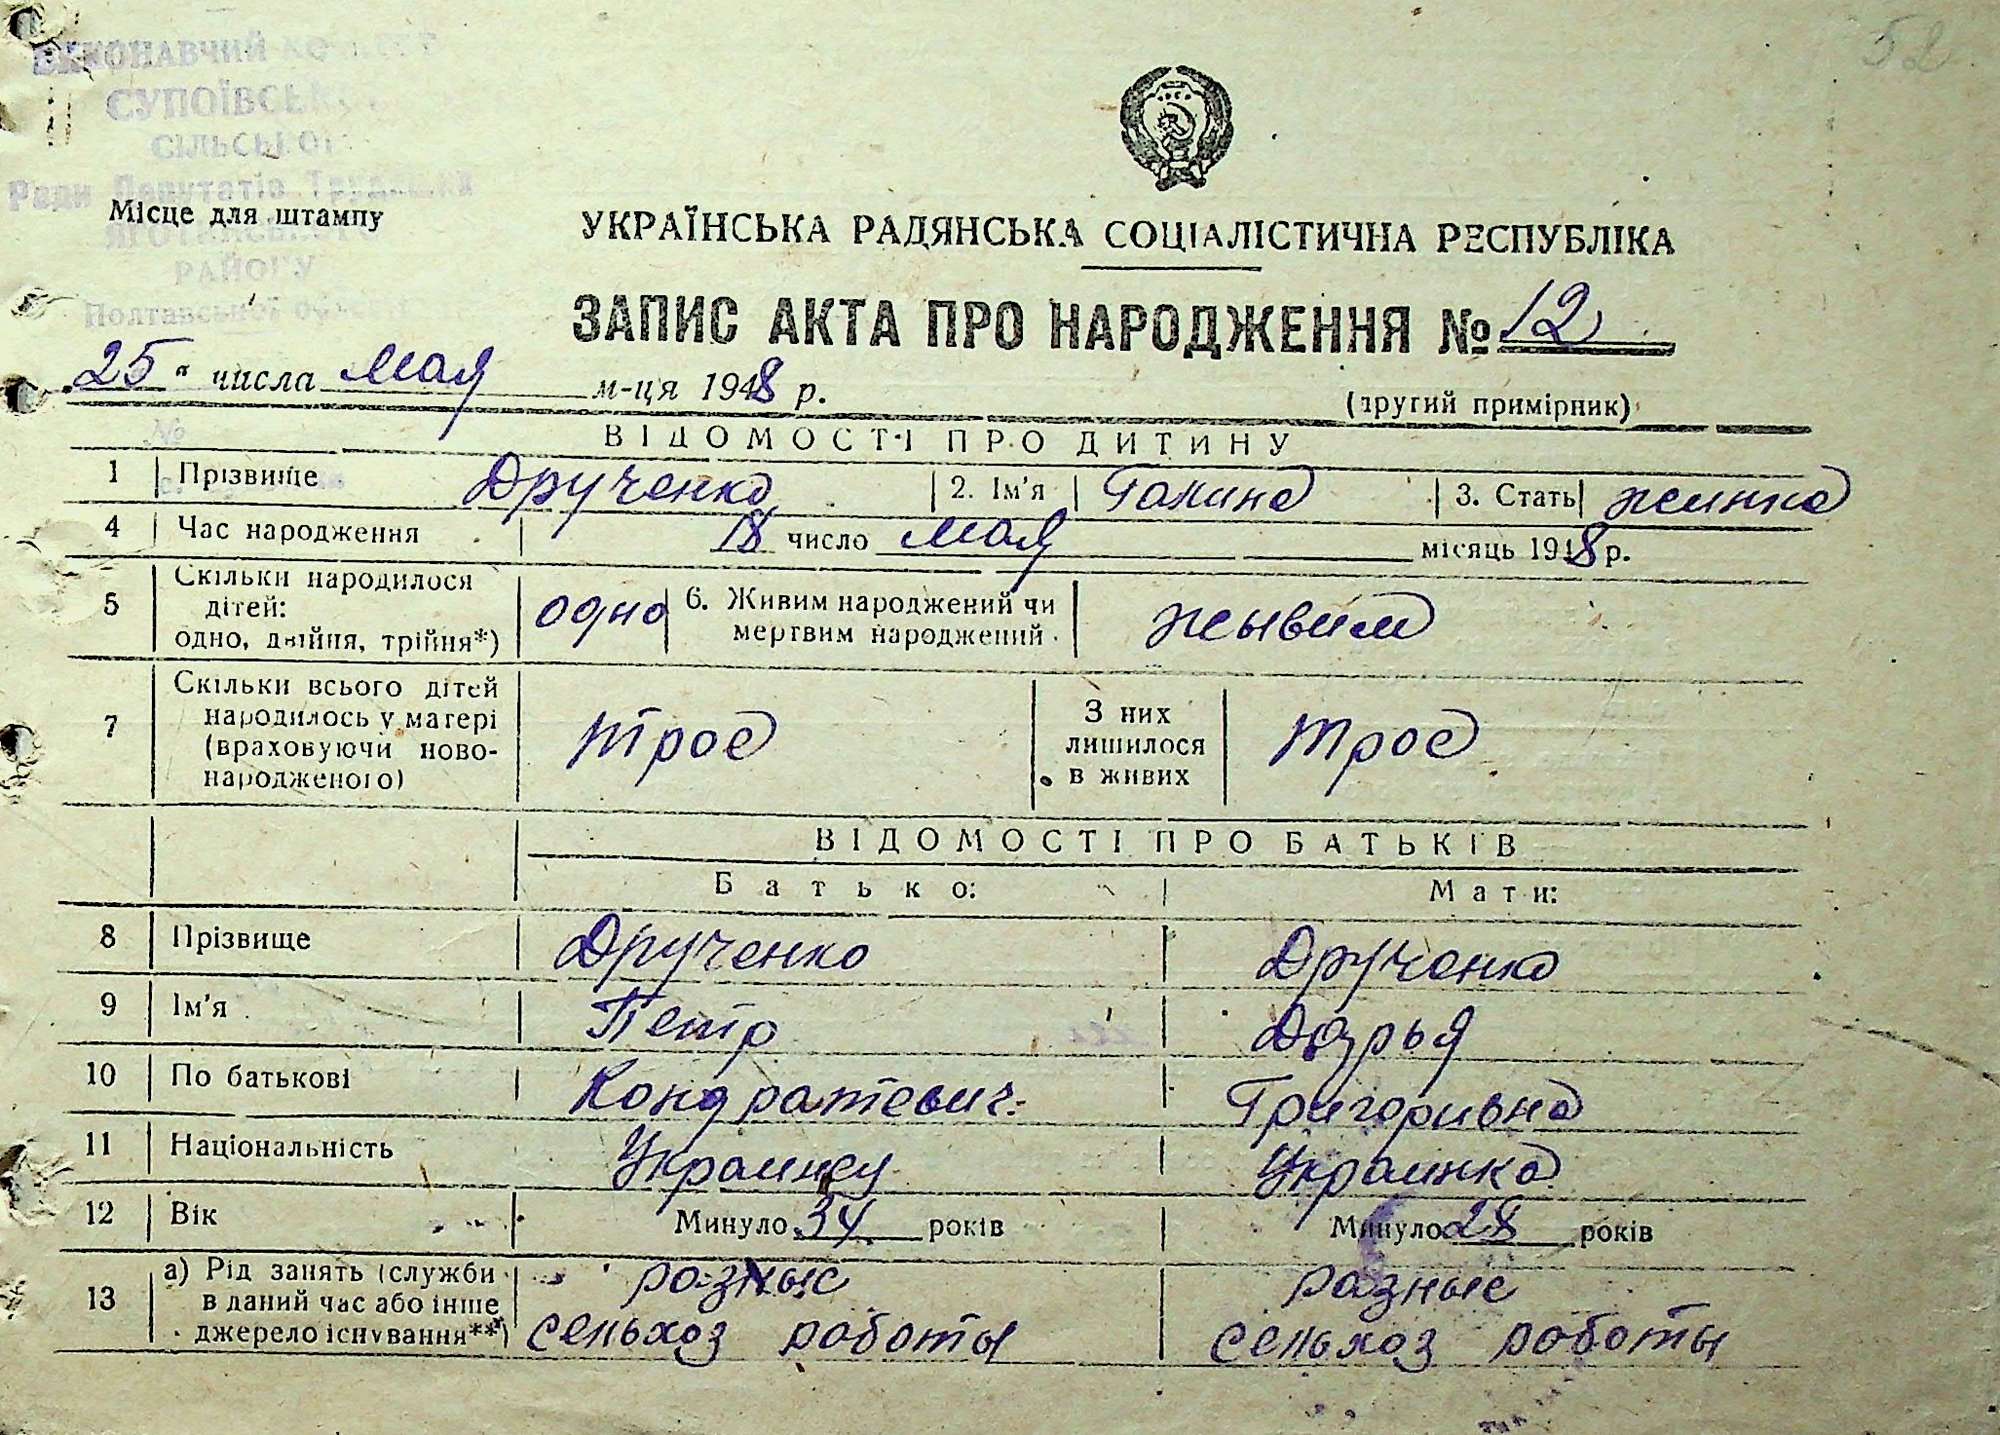 52
ВИКОНАВЧИЙ КОМІТЕТ
СУПОЇВСЬКОЇ
СІЛЬСЬКОЇ
Ради Депутатів Трудящих
Місце для штампу
ЯГОТИНСЬКОГО
РАЙОНУ
Полтавської області
УКРАЇНСЬКА РАДЯНСЬКА СОЦІАЛІСТИЧНА РЕСПУБЛІКА
ЗАПИС АКТА ПРО НАРОДЖЕННЯ № 12
25 " числа мая м-ця 1948 р.
(другий примірник)
№
ВІДОМОСТІ ПРО ДИТИНУ
1 Прізвище Друченко 2. Ім'я Галина 3. Стать жинка
4 Час народження 18 число мая місяць 1948 р.
5 Скільки народилося дітей: одно, двійня, трійня*) одно 6. Живим народжений чи мертвим народжений жывим
7 Скільки всього дітей народилось у матері (враховуючи ново-народженого) трое З них лишилося в живих трое
ВІДОМОСТІ ПРО БАТЬКІВ
Батько: Мати:
8 Прізвище Друченко Друченко
9 Ім'я Петр Дарья
10 По батькові Кондратевич Григоривна
11 Національність Украинец Украинка
12 Вік Минуло 34 років Минуло 28 років
13 а) Рід занять (служби в даний час або інше джерело існування**) разные сельхоз работы разные сельхоз работы